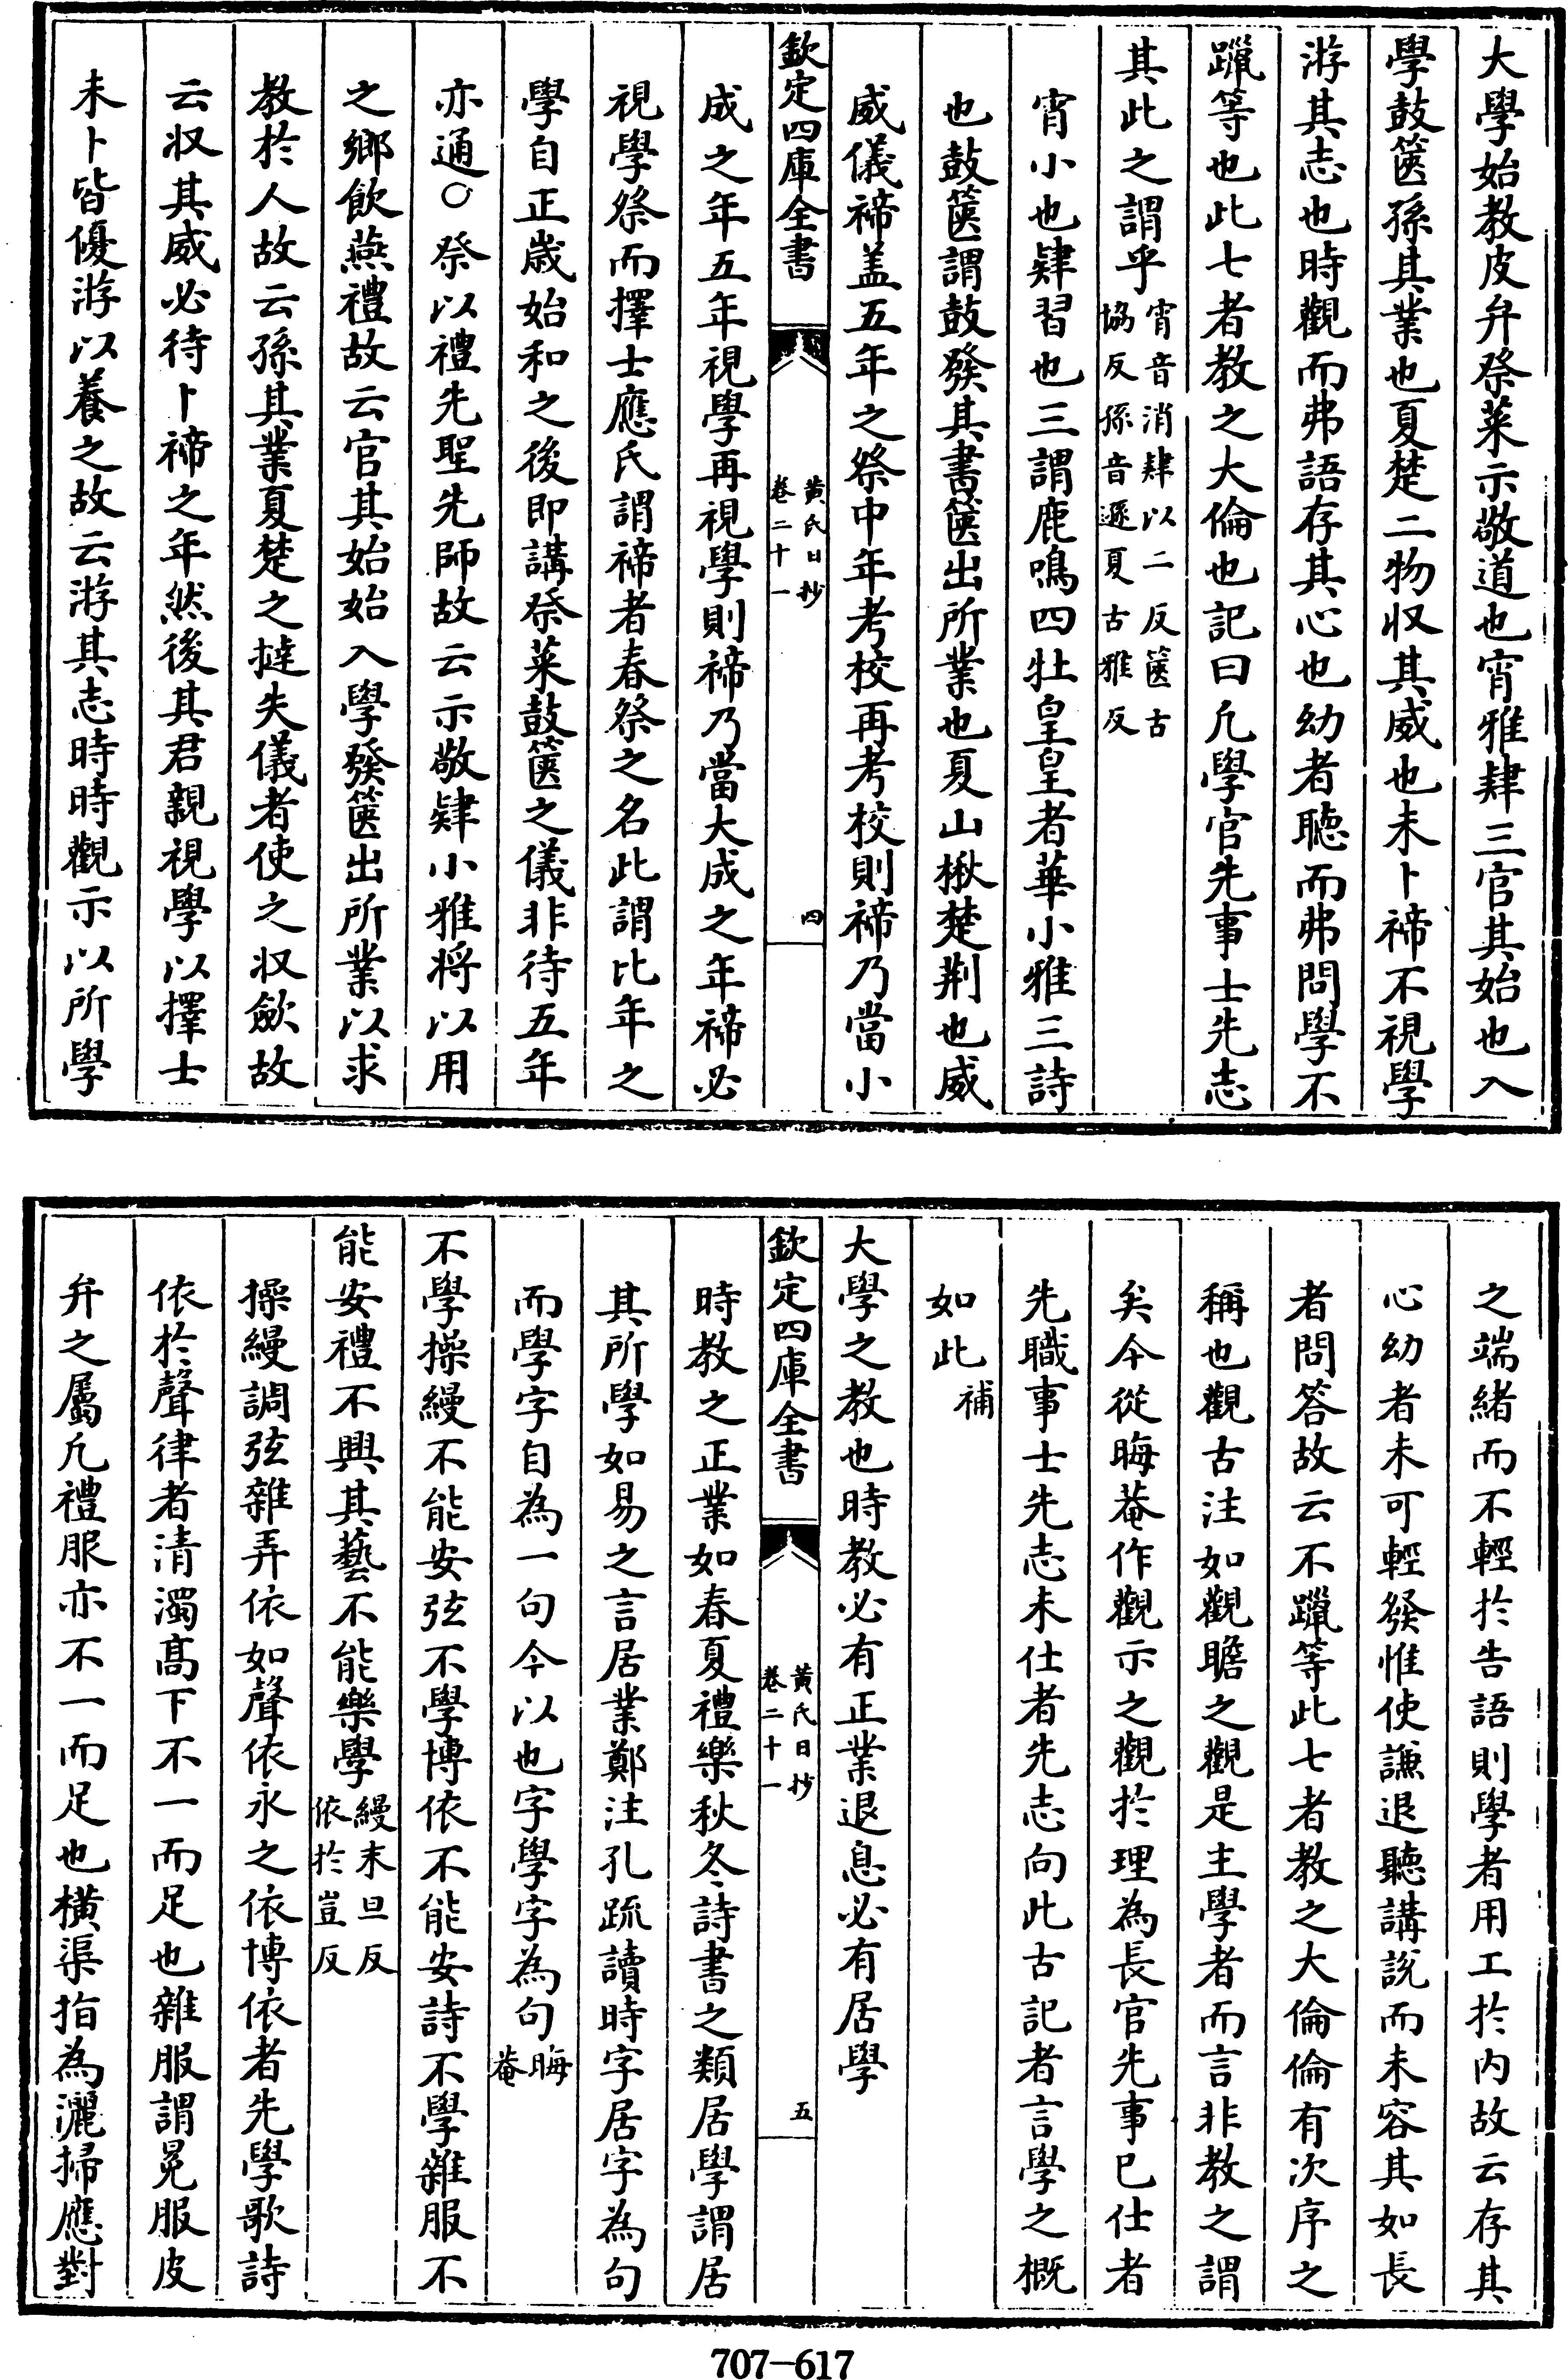 大學始教皮弁祭菜示敬道也宵雅肄三官其始也入
學鼓篋孫其業也夏楚二物収其威也未卜禘不視學
游其志也時觀而弗語存其心也幼者聽而弗問學不
躐等也此七者教之大倫也記曰凡學官先事士先志
其此之謂乎宵音消肄以二反篋古
協反孫音遜夏古雅反
宵小也肄習也三謂鹿鳴四牡皇皇者華小雅三詩
也鼓篋謂鼓發其書篋出所業也夏山楸楚荆也威
威儀禘盖五年之祭中年考校再考校則禘乃當小
欽定四庫全書
黄氏日抄
卷二十一
四
成之年五年視學再視學則禘乃當大成之年禘必
視學祭而擇士應氏謂禘者春祭之名此謂比年之
學自正歲始和之後即講祭菜鼓篋之儀非待五年
亦通○祭以禮先聖先師故云示敬肄小雅将以用
之鄉飲燕禮故云官其始始入學發篋出所業以求
教於人故云孫其業夏楚之撻失儀者使之収歛故
云収其威必待卜禘之年然後其君親視學以擇士
未卜皆優游以養之故云游其志時時觀示以所學
之端緒而不輕於告語則學者用工於内故云存其
心幼者未可輕發惟使謙退聽講説而未容其如長
者問答故云不躐等此七者教之大倫倫有次序之
稱也觀古注如觀瞻之觀是主學者而言非教之謂
矣今從晦菴作觀示之觀於理為長官先事已仕者
先職事士先志未仕者先志向此古記者言學之概
如此補
大學之教也時教必有正業退息必有居學
欽定四庫全書
黄氏日抄
卷二十一
五
時教之正業如春夏禮樂秋冬詩書之類居學謂居
其所學如易之言居業鄭注孔疏讀時字居字為句
而學字自為一句今以也字學字為句晦
菴
不學操縵不能安弦不學博依不能安詩不學雜服不
能安禮不興其藝不能樂學縵末旦反
依於豈反
操縵調弦雜弄依如聲依永之依博依者先學歌詩
依於聲律者清濁髙下不一而足也雜服謂冕服皮
弁之屬凡禮服亦不一而足也横渠指為灑掃應對
707-617